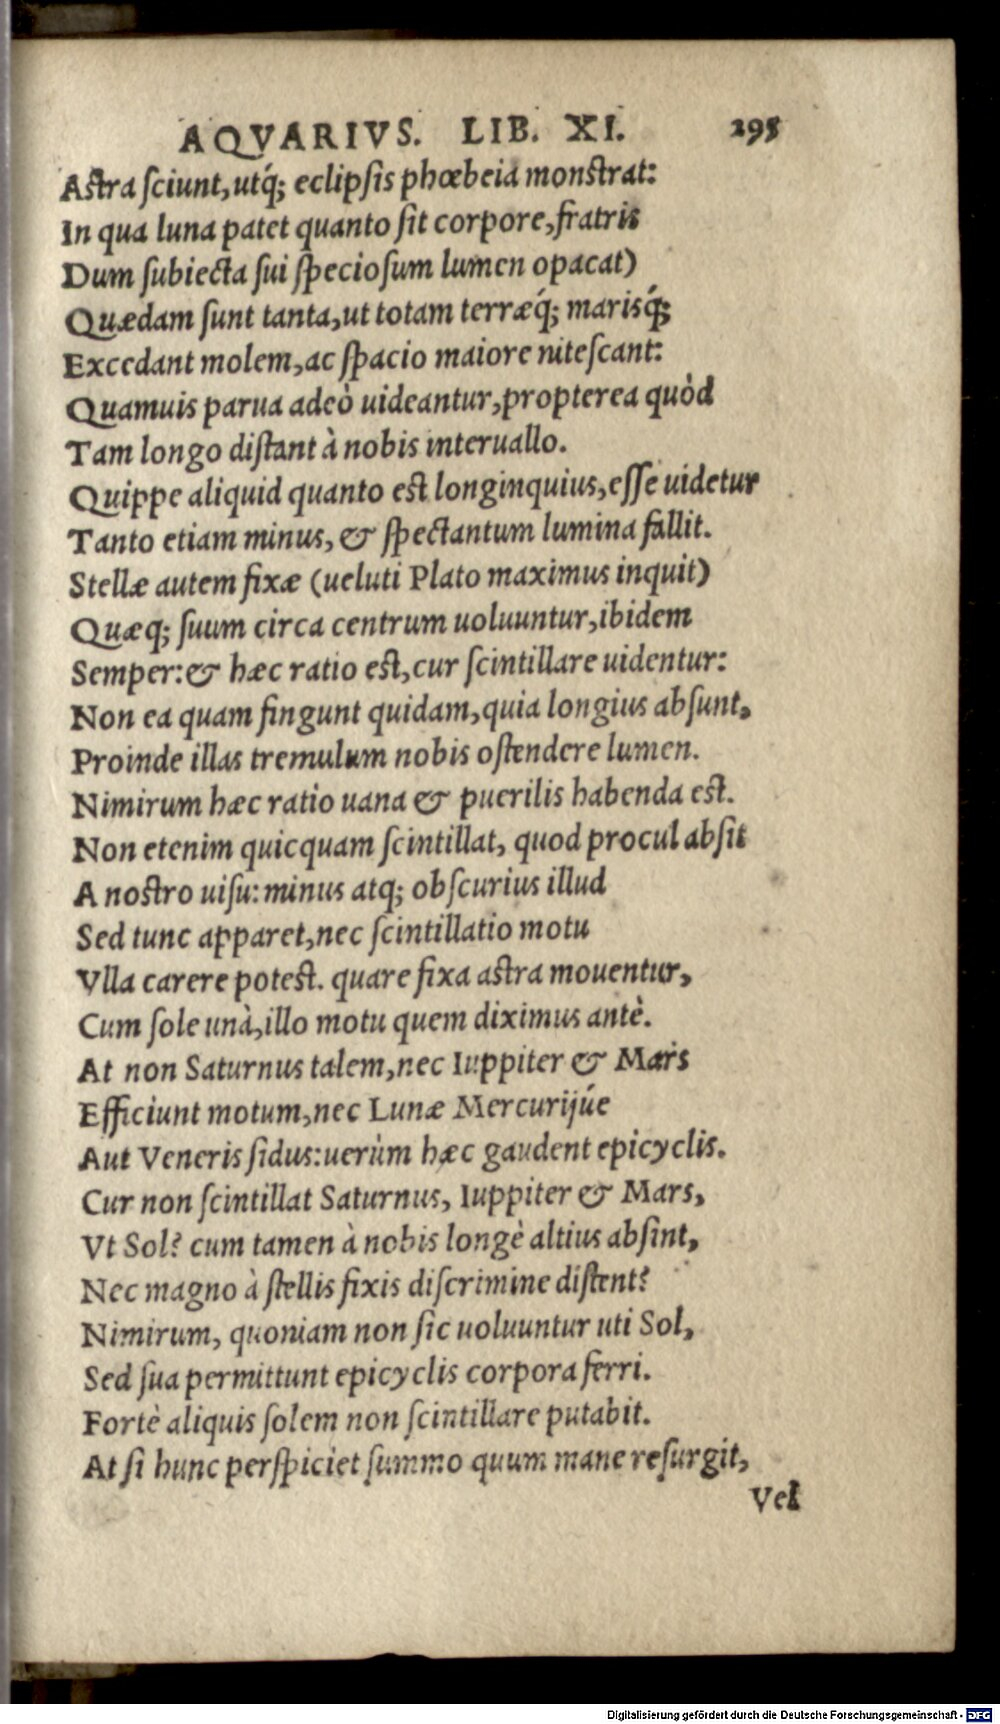 AQVARIVS. LIB. XI. 295
Astra sciunt, utq́; eclipsis phœbeia monstrat:
In qua luna patet quanto sit corpore, fratris
Dum subiecta sui speciosum lumen opacat)
Quædam sunt tanta, ut totam terræq́; marisq́;
Excedant molem, ac spacio maiore nitescant:
Quamuis parua adeò uideantur, propterea quòd
Tam longo distant à nobis interuallo.
Quippe aliquid quanto est longinquius, esse uidetur
Tanto etiam minus, & spectantum lumina fallit.
Stellæ autem fixæ (ueluti Plato maximus inquit)
Quæq; suum circa centrum uoluuntur, ibidem
Semper: & hæc ratio est, cur scintillare uidentur:
Non ea quam fingunt quidam, quia longius absunt,
Proinde illas tremulum nobis ostendere lumen.
Nimirum hæc ratio uana & puerilis habenda est.
Non etenim quicquam scintillat, quod procul absit
A nostro uisu: minus atq; obscurius illud
Sed tunc apparet, nec scintillatio motu
Vlla carere potest. quare fixa astra mouentur,
Cum sole unà, illo motu quem diximus antè.
At non Saturnus talem, nec Iuppiter & Mars
Efficiunt motum, nec Lunæ Mercurijúe
Aut Veneris sidus: uerùm hæc gaudent epicyclis.
Cur non scintillat Saturnus, Iuppiter & Mars,
Vt Sol? cum tamen à nobis longè altius absint,
Nec magno à stellis fixis discrimine distent?
Nimirum, quoniam non sic uoluuntur uti Sol,
Sed sua permittunt epicyclis corpora ferri.
Fortè aliquis solem non scintillare putabit.
At si hunc perspiciet summo quum mane resurgit,
Vel
Digitalisierung gefördert durch die Deutsche Forschungsgemeinschaft - DFG